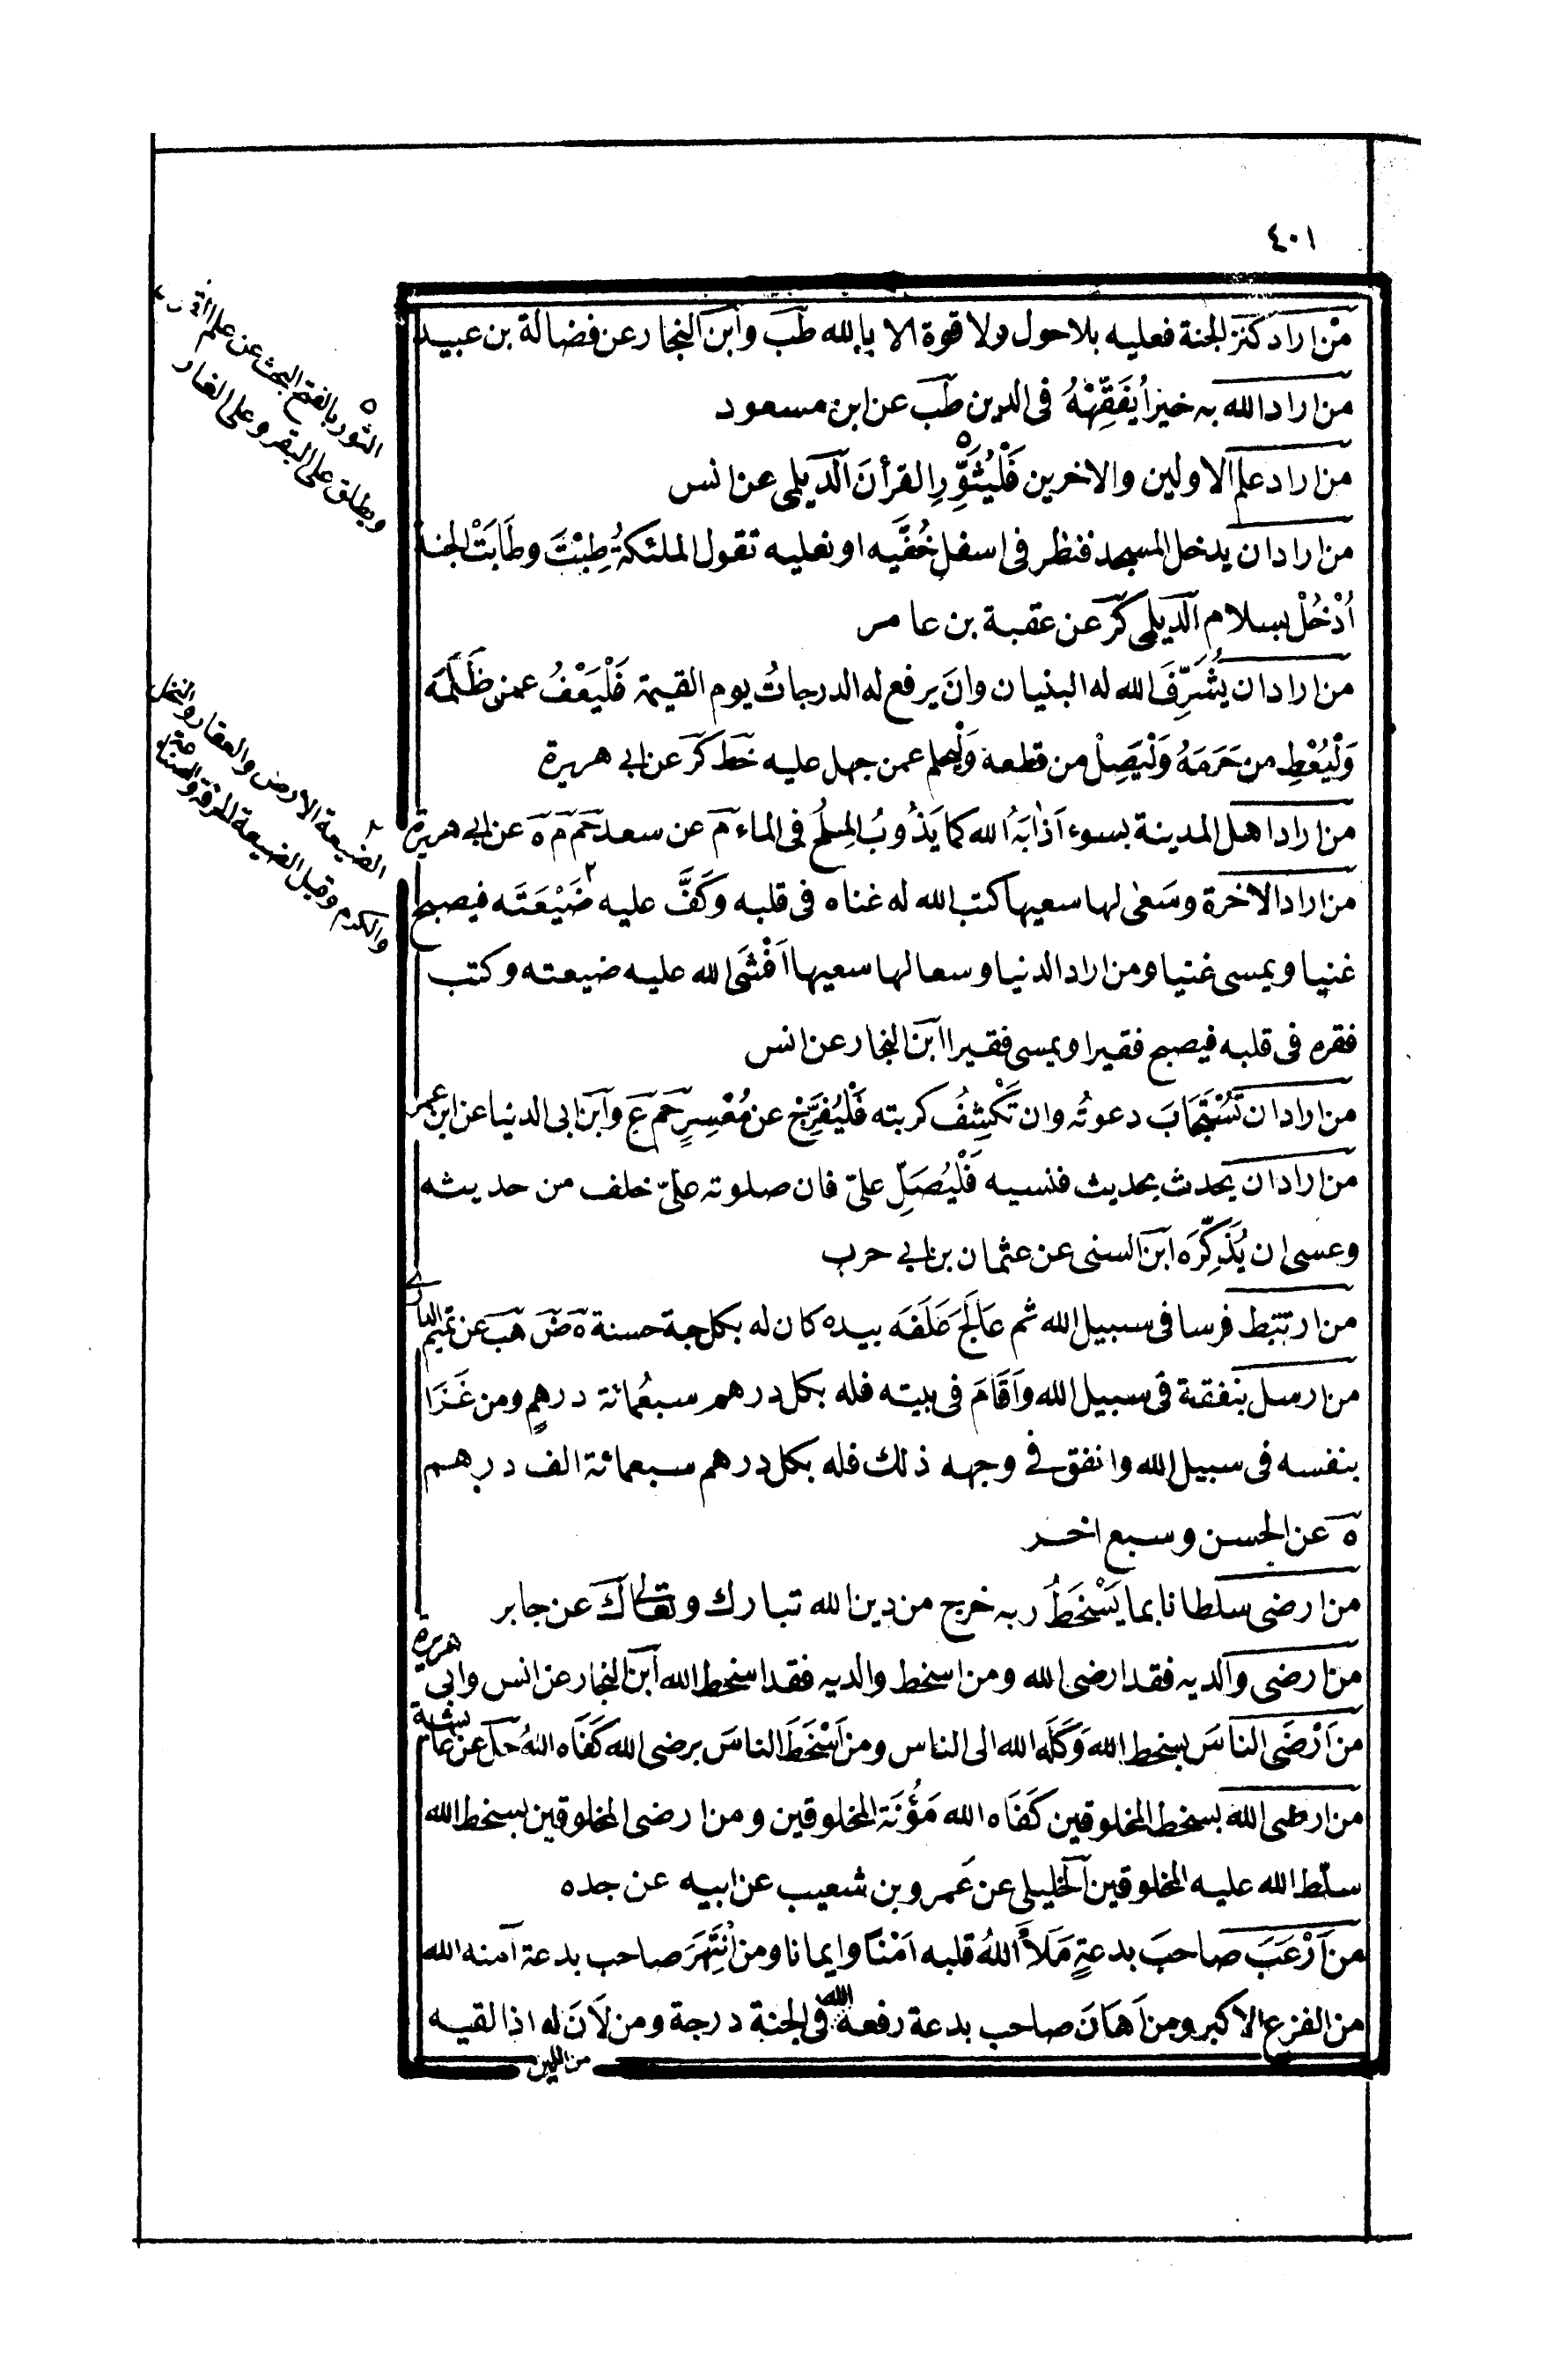 ٤٠١
من اراد كنز الجنة فعليه بلا حول ولا قوة الا بالله طب وابن النجار عن فضالة بن عبيد
من اراد الله به خيرا يُفَقِّهْهُ فى الدين طب عن ابن مسعود
من اراد علم الاولين والاخرين فَلْيُثَوِّرِ القرأنَ الديلمى عن انس
من اراد ان يدخل المسجد فنظر فى اسفل خُفَّيه او نعليه تقول الملئكةُ طِبْتَ وطَابَتْ الجنة
اُدْخُلْ بسلام الديلمى كر عن عقبة بن عامر
من اراد ان يُشَرِّفَ الله له البنيان وان يرفع له الدرجاتُ يوم القيمة فَلْيَعْفُ عمن ظَلَمَه
وَلْيُعْطِ من حَرَمَهُ وَلْيَصِلْ من قطعه وَلْيحلم عمن جهل عليه خط كر عن ابى هريرة
من اراد اهل المدينة بسوء اَذَابَهُ الله كما يَذُوبُ المِلحُ فى الماء م عن سعد حم م ه عن ابى هريرة
من اراد الاخرة وسَعٰى لها سعيها كتب الله له غناه فى قلبه وكَفَّ عليه ضَيْعَتَه فيصبح
غنيا ويمسى غنيا ومن اراد الدنيا وسعا لها سعيها اَفْشَى الله عليه ضيعته وكتب
فقره فى قلبه فيصبح فقيرا ويمسى فقيرا ابن النجار عن انس
من اراد ان تُسْتَجَابَ دعوتُه وان تَكْشِفُ كربته فَلْيُفَرِّجْ عن مُعْسِرٍ حم ع وابن ابى الدنيا عن ابن عمر
من اراد ان يحدث بحديث فنسيه فَلْيُصَلِّ علىّ فان صلوته علىّ خلف من حديثه
وعسى ان يُذَكِّرَه ابن السنى عن عثمان بن ابى حرب
من ارتبط فرسا فى سبيل الله ثم عَالَجَ عَلَفَه بيده كان له بكل حبة حسنة ه ض هب عن تميم الدارى
من ارسل بنفقة فى سبيل الله وَاَقَامَ فى بيته فله بكل درهم سبعُمائة درهمٍ ومن غَزَا
بنفسه فى سبيل الله وانفق فى وجهه ذلك فله بكل درهم سبعمائة الف درهم
ه عن الحسن وسبع اخر
من ارضى سلطانا بما يَسْخَطُ ربه خرج من دين الله تبارك وتعالى ك عن جابر
من ارضى والديه فقد ارضى الله ومن اسخط والديه فقد اسخط الله ابن النجار عن انس وابى هريرة
من اَرْضَى الناسَ بسخط الله وَكَلَه الله الى الناس ومن اَسْخَطَ الناسَ برضى الله كَفَاه اللهُ حل عن عايشة
من ارضى الله بسخط المخلوقين كَفَاه الله مَؤُنَةَ المخلوقين ومن ارضى المخلوقين بسخط الله
سلّط الله عليه المخلوقين الخليلى عن عَمرو بن شعيب عن ابيه عن جده
من اَرْعَبَ صاحبَ بدعةٍ مَلَأَ اللهُ قلبه اَمْنًا وايمانا ومن انْتَهَرَ صاحب بدعة آمنه الله
من الفزع الاكبر ومن اَهَانَ صاحب بدعة رفعه الله فى الجنة درجة ومن لَانَ له اذا لقيه
من اللين
الثور بالفتح البحث عن علم القرآن
ويطلق على البقر وعلى الغار
الضيعة الارض والعقار والنخل
والكرم وقيل الضيعة الحرفة والصناعة